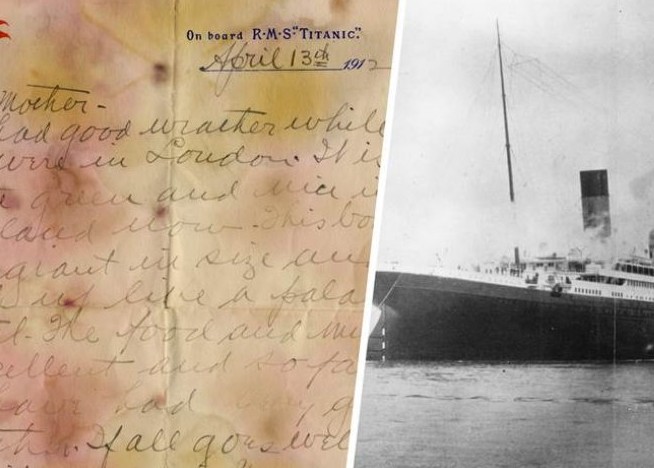 On board R·M·S "TITANIC."
April 13th 1912
Mother-
had good weather while
were in London. It is
green and nice i
land now. This bo
giant in size an
up like a pala
The food and mu
ellent and so fa
had
If all goes wel